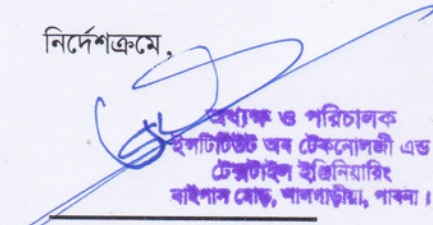 নির্দেশক্রমে,
অধ্যক্ষ ও পরিচালক
ইনস্টিটিউট অব টেকনোলজী এন্ড
টেক্সটাইল ইঞ্জিনিয়ারিং
বাইপাস রোড, শালগাড়ীয়া, পাবনা।